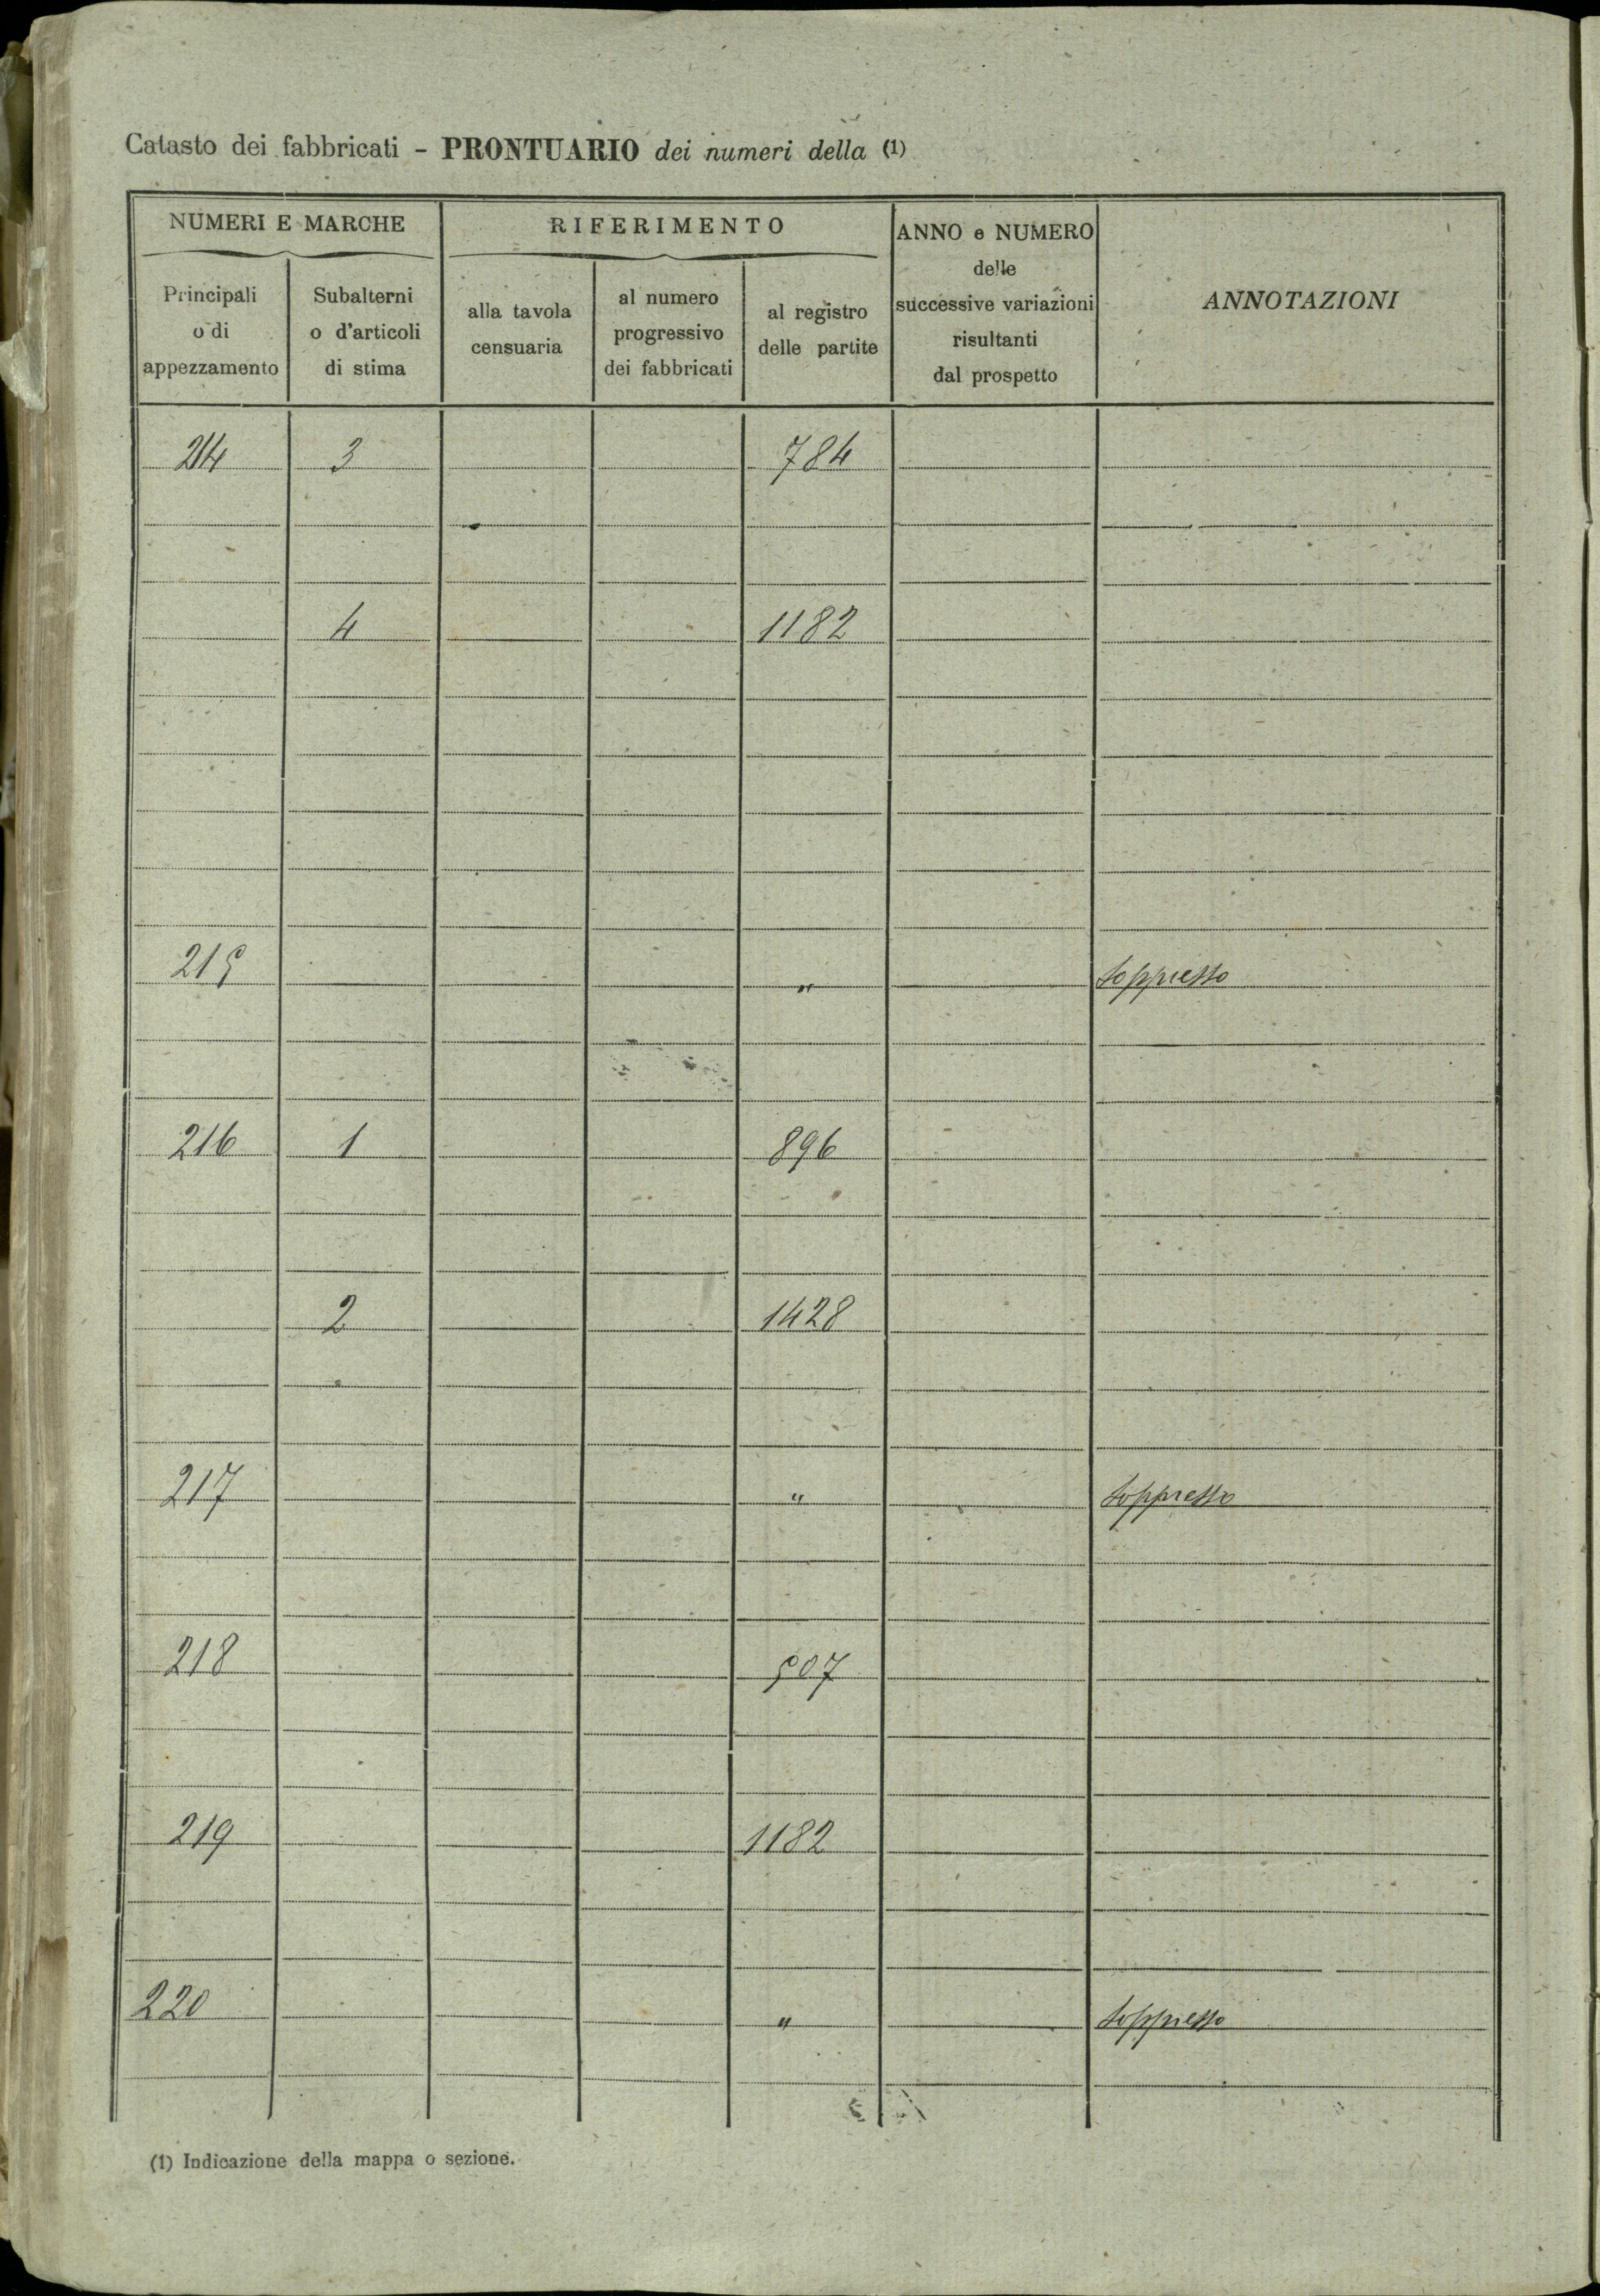 Catasto dei fabbricati - PRONTUARIO dei numeri della (1)
NUMERI E MARCHE
RIFERIMENTO
ANNO e NUMERO
delle
successive variazioni
risultanti
dal prospetto
ANNOTAZIONI
Principali
o di
appezzamento
Subalterni
o d'articoli
di stima
alla tavola
censuaria
al numero
progressivo
dei fabbricati
al registro
delle partite
214 3 784
4 1182
215 " soppresso
216 1 896
2 1428
217 " soppresso
218 507
219 1182
220 " soppresso
(1) Indicazione della mappa o sezione.